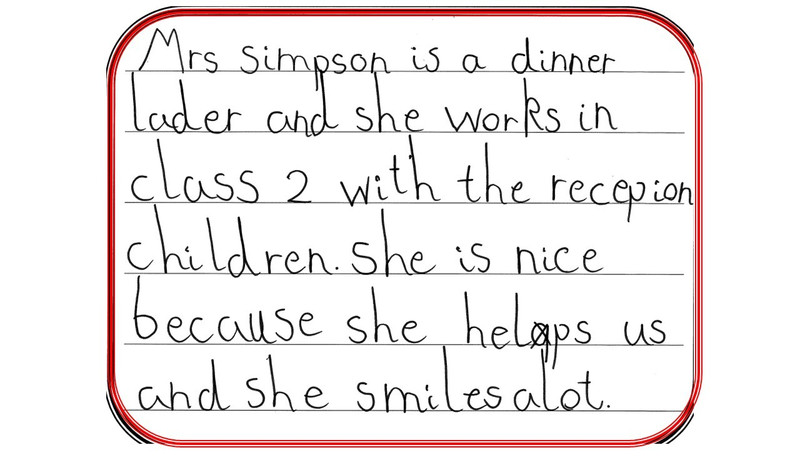 Mrs simpson is a dinner
lader and she works in
class 2 with the recepion
children. She is nice
because she helps us
and she smiles alot.